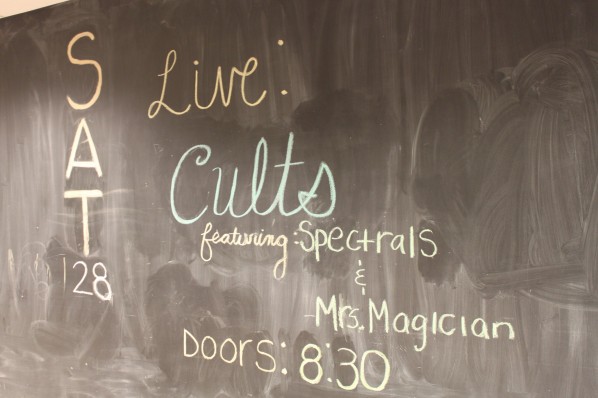 SAT
128
Live:
Cults
featuring: Spectrals
&
Mrs. Magician
Doors: 8:30